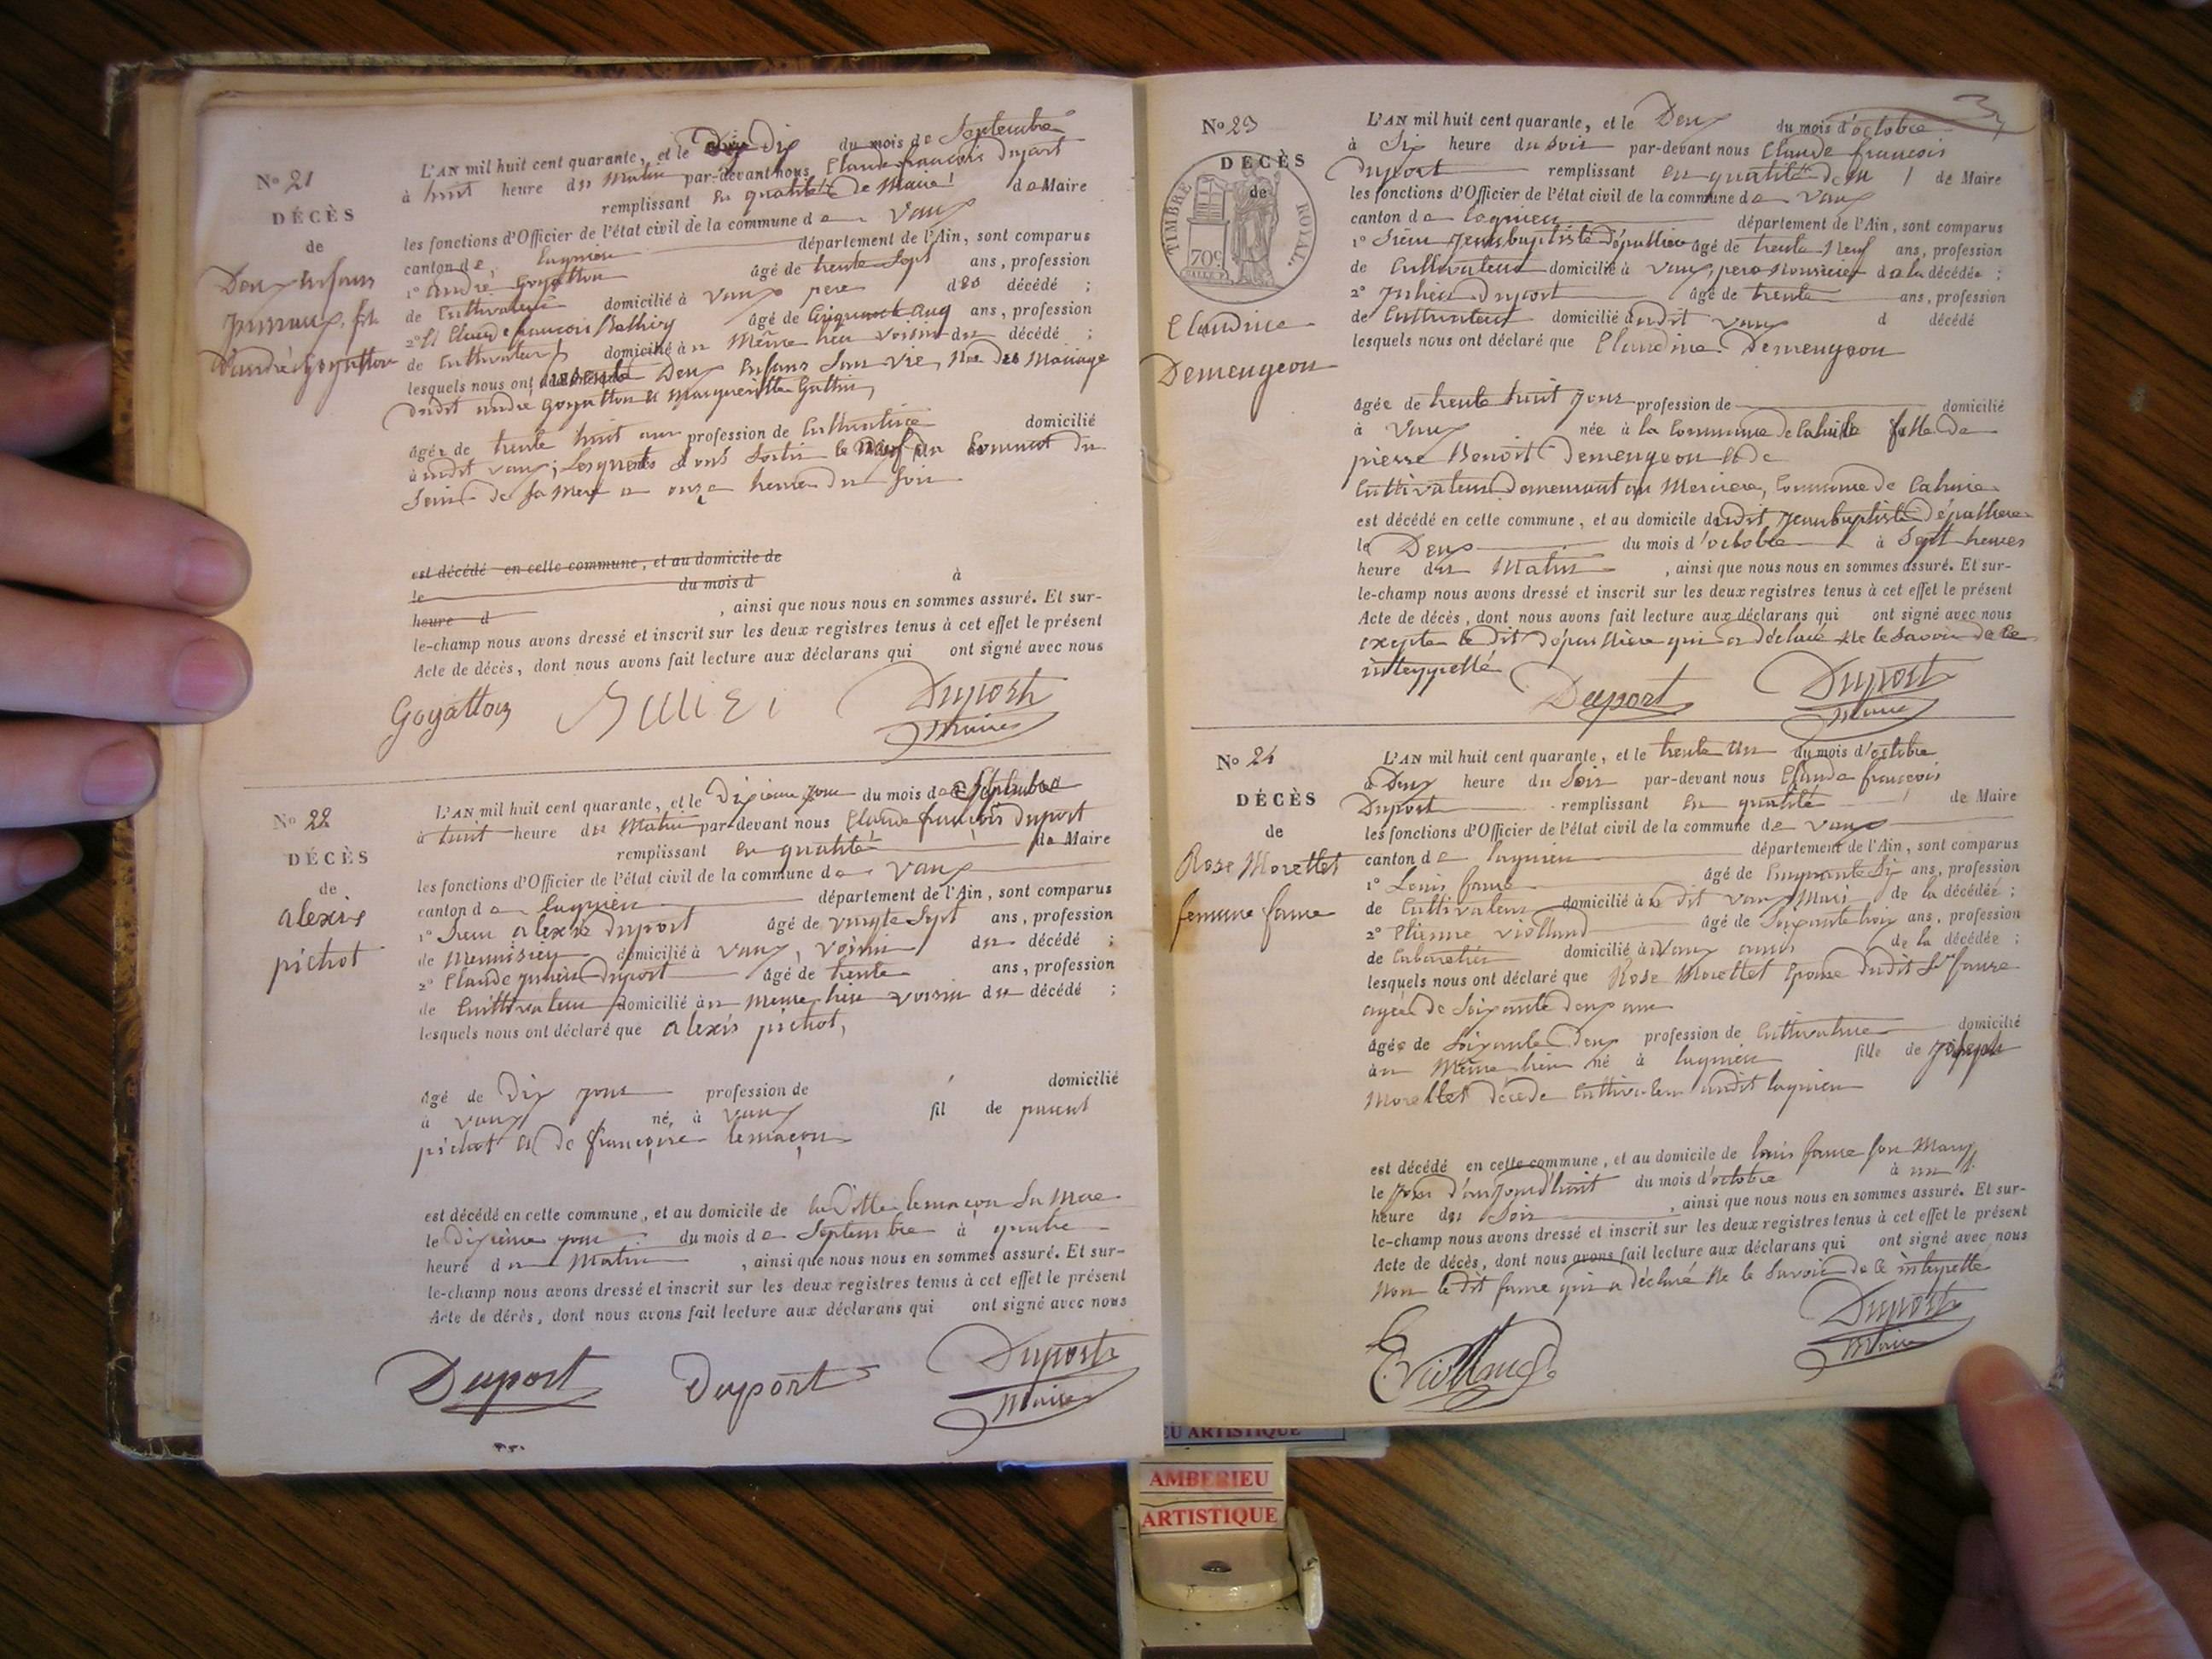 No 21
DÉCÈS
de
Deux enfans
jumaux, fils
d'andré Goyatton
L'AN mil huit cent quarante, et le dix du mois de Septembre
à huit heure du Matin par-devant nous Claude francois Duport
remplissant en qualité de Maire de Maire
les fonctions d'Officier de l'état civil de la commune de Vaux
canton de lagnieu département de l'Ain, sont comparus
1° andré Goyatton âgé de trente Sept ans, profession
de Cultivateur domicilié à Vaux pere des décédé ;
2° Claude francois âgé de Cinquante ans, profession
de Cultivateur domicilié à u Même lieu Voisin du décédé ;
lesquels nous ont Deux Enfans San vie, Née des Mariage
dudit andré Goyatton & Margueritte
âgée de trente huit ans profession de Cultivatrice domicilié
à udit vaux ; lesquels Sont Sortis le du
Sein de Sa Mere a onze heure du Soir
est décédé en cette commune, et au domicile de
le du mois d à
heure d , ainsi que nous nous en sommes assuré. Et sur-
le-champ nous avons dressé et inscrit sur les deux registres tenus à cet effet le présent
Acte de décès, dont nous avons fait lecture aux déclarans qui ont signé avec nous
Goyatton Duport
Maire
No 22
DÉCÈS
de
alexis
pichot
L'AN mil huit cent quarante, et le Dixieme jour du mois de Septembre
à huit heure du Matin par-devant nous Claude francois Duport
remplissant en qualité de Maire
les fonctions d'Officier de l'état civil de la commune de Vaux
canton de lagnieu département de l'Ain, sont comparus
1° Sieur alexis Duport âgé de vingte Sept ans, profession
de Menuisier domicilié à Vaux, Voisin du décédé ;
2° Claude julien Duport âgé de trente ans, profession
de Cultivateur domicilié à u meme lieu voisin du décédé ;
lesquels nous ont déclaré que alexis pichot,
âgé de Dix jour profession de domicilié
à vaux né, à vaux fil de
pichot et de françoise lemaçon
est décédé en cette commune, et au domicile de lemaçon Sa Mere
le dixieme jour du mois de Septembre à quatre
heure du Matin , ainsi que nous nous en sommes assuré. Et sur-
le-champ nous avons dressé et inscrit sur les deux registres tenus à cet effet le présent
Acte de décès, dont nous avons fait lecture aux déclarans qui ont signé avec nous
Duport Duport Duport
Maire
No 23
DÉCÈS
de
TIMBRE ROYAL.
70c
Claudine
Demengeon
L'AN mil huit cent quarante, et le Deux du mois d'octobre
à Six heure du soir par-devant nous Claude francois
Duport remplissant en qualité de Maire
les fonctions d'Officier de l'état civil de la commune de Vaux
canton de lagnieu département de l'Ain, sont comparus
1° Sieur Jeanbaptiste Dépallière âgé de trente Neuf ans, profession
de Cultivateur domicilié à Vaux, pere nourricier de la décédée ;
2° Julien Duport âgé de trente ans, profession
de Cultivateur domicilié audit vaux d décédé
lesquels nous ont déclaré que Claudine Demengeon
âgée de trente huit jour profession de domicilié
à Vaux née à la Commune de fille de
pierre Benoit Demengeon et de
Cultivateur Demeurant au Commune de
est décédé en cette commune, et au domicile dudit Jeanbaptiste Dépalliere
le Deux du mois d'octobre à Sept heures
heure du Matin , ainsi que nous nous en sommes assuré. Et sur-
le-champ nous avons dressé et inscrit sur les deux registres tenus à cet effet le présent
Acte de décès, dont nous avons fait lecture aux déclarans qui ont signé avec nous
excepte le dit Dépallière qui a déclaré ne le Savoir de ce
interppellé
Duport Duport
Maire
No 24
DÉCÈS
de
Rose Morellet
femme faure
L'AN mil huit cent quarante, et le trente un du mois d'octobre
à Deux heure du Soir par-devant nous Claude francois
Duport remplissant en qualité de Maire
les fonctions d'Officier de l'état civil de la commune de vaux
canton de lagnieu département de l'Ain, sont comparus
1° Louis faure âgé de Cinquante Six ans, profession
de Cultivateur domicilié à u dit vaux Mari de la décédée ;
2° Etienne violland âgé de Soixante trois ans, profession
de Cabaretier domicilié à Vaux amis de la décédée ;
lesquels nous ont déclaré que Rose Morellet Epouse dudit Sr faure
agée de Soixante deux ans
âgée de Soixante Deux profession de Cultivatrice domicilié
à u Même lieu né à lagnieu fille de Joseph
Morellet décédé Cultivateur audit lagnieu
est décédé en cette commune, et au domicile de louis faure Son Mary
le jour d'aujourd'huit du mois d'octobre à une
heure du Soir , ainsi que nous nous en sommes assuré. Et sur-
le-champ nous avons dressé et inscrit sur les deux registres tenus à cet effet le présent
Acte de décès, dont nous avons fait lecture aux déclarans qui ont signé avec nous
Non le dit faure qui a déclaré Ne le Savoir de ce interpelle
E violland Duport
Maire
EU ARTISTIQUE
AMBERIEU
ARTISTIQUE